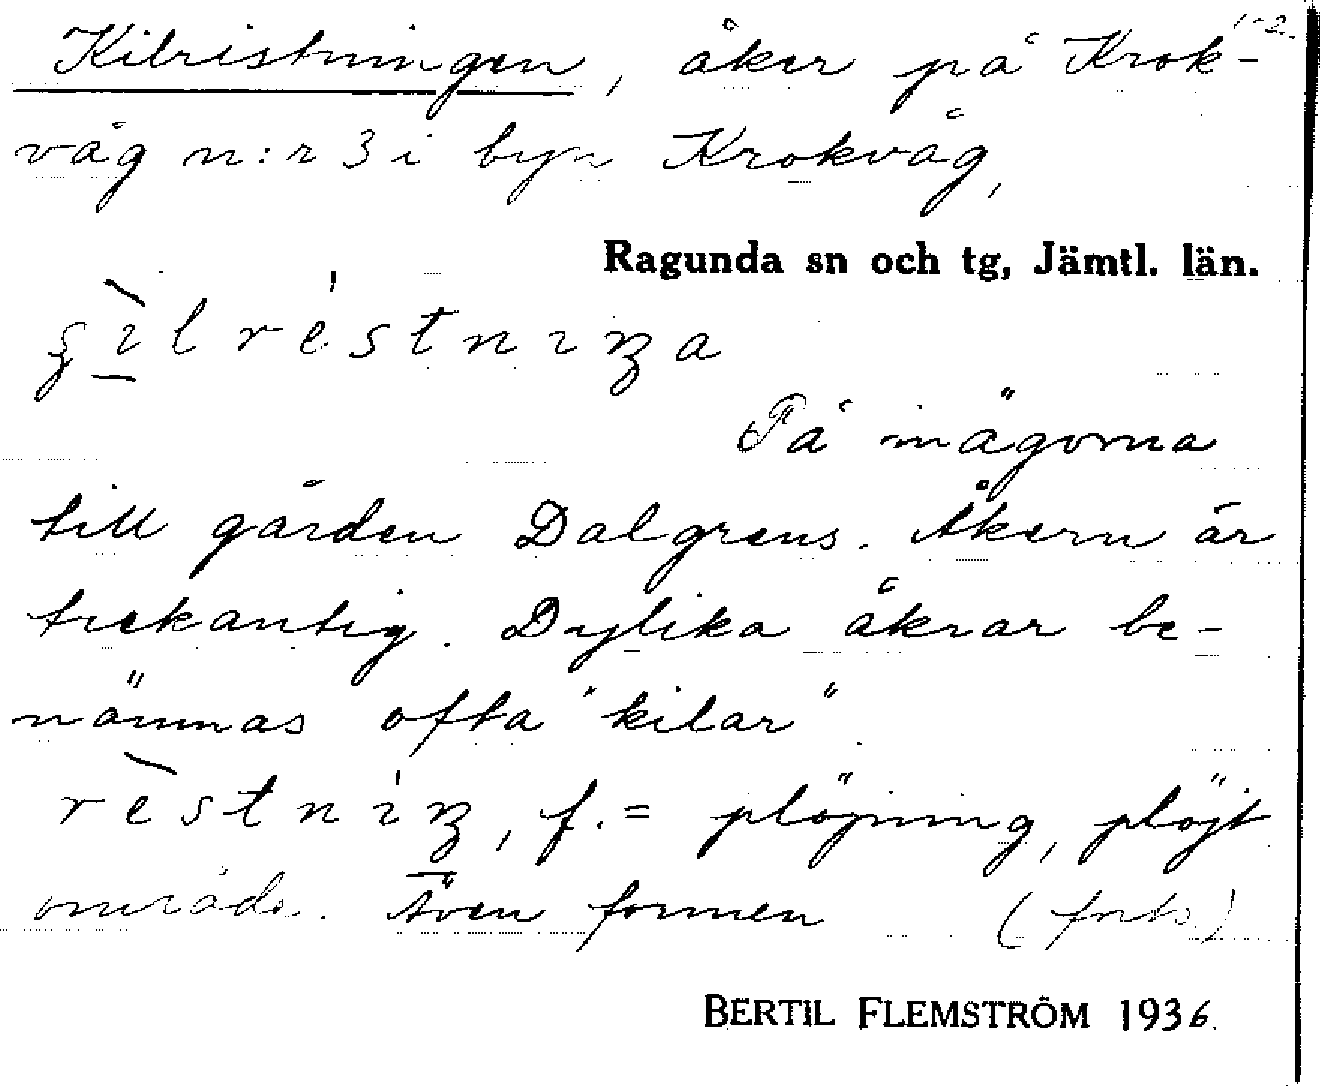 1-2.
Kilristningen, åker på Krok-
våg n:r 3 i byn Krokvåg,
Ragunda sn och tg, Jämtl. län.
På inägorna
till gården Dalgrens. Åkern är
trekantig. Dylika åkrar be-
nämnas ofta "kilar".
f. = plöjning, plöjt
område. Även formen (forts.)
BERTIL FLEMSTRÖM 1936.